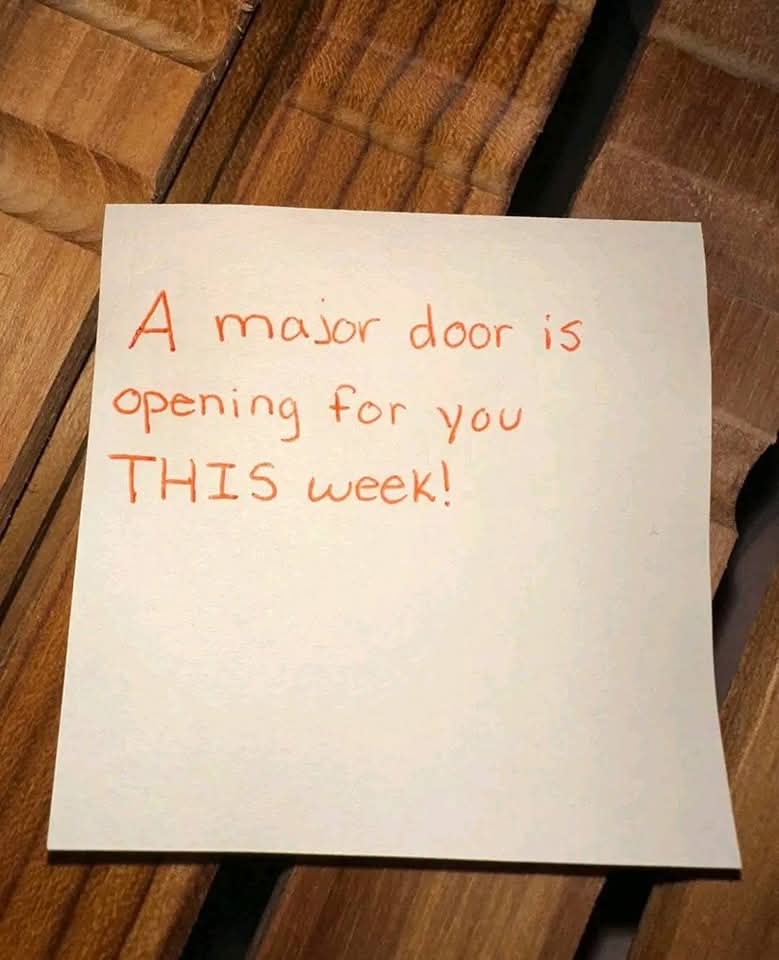 A major door is
opening for you
THIS week!